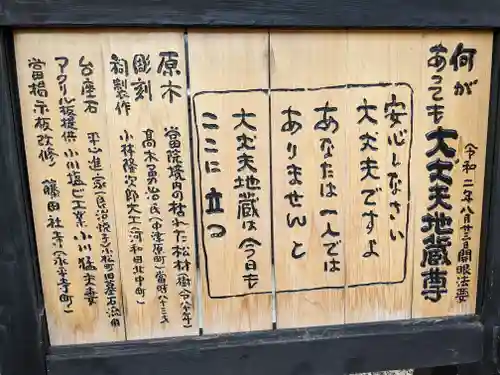 何が
あっても大丈夫地蔵尊
令和二年八月廿三日開眼法要
安心しなさい
大丈夫ですよ
あなたは一人では
ありませんと
大丈夫地蔵は今日も
ここに立つ
原木 当院境内の枯れた松材
彫刻 高木勇治氏
祠製作 小林隆次郎大工(河和田北中町)
台座石 平山進家
アクリル板提供 小川塩ビ工業小川猛夫妻
当掲示板改修 藤田社寺(永平寺町)